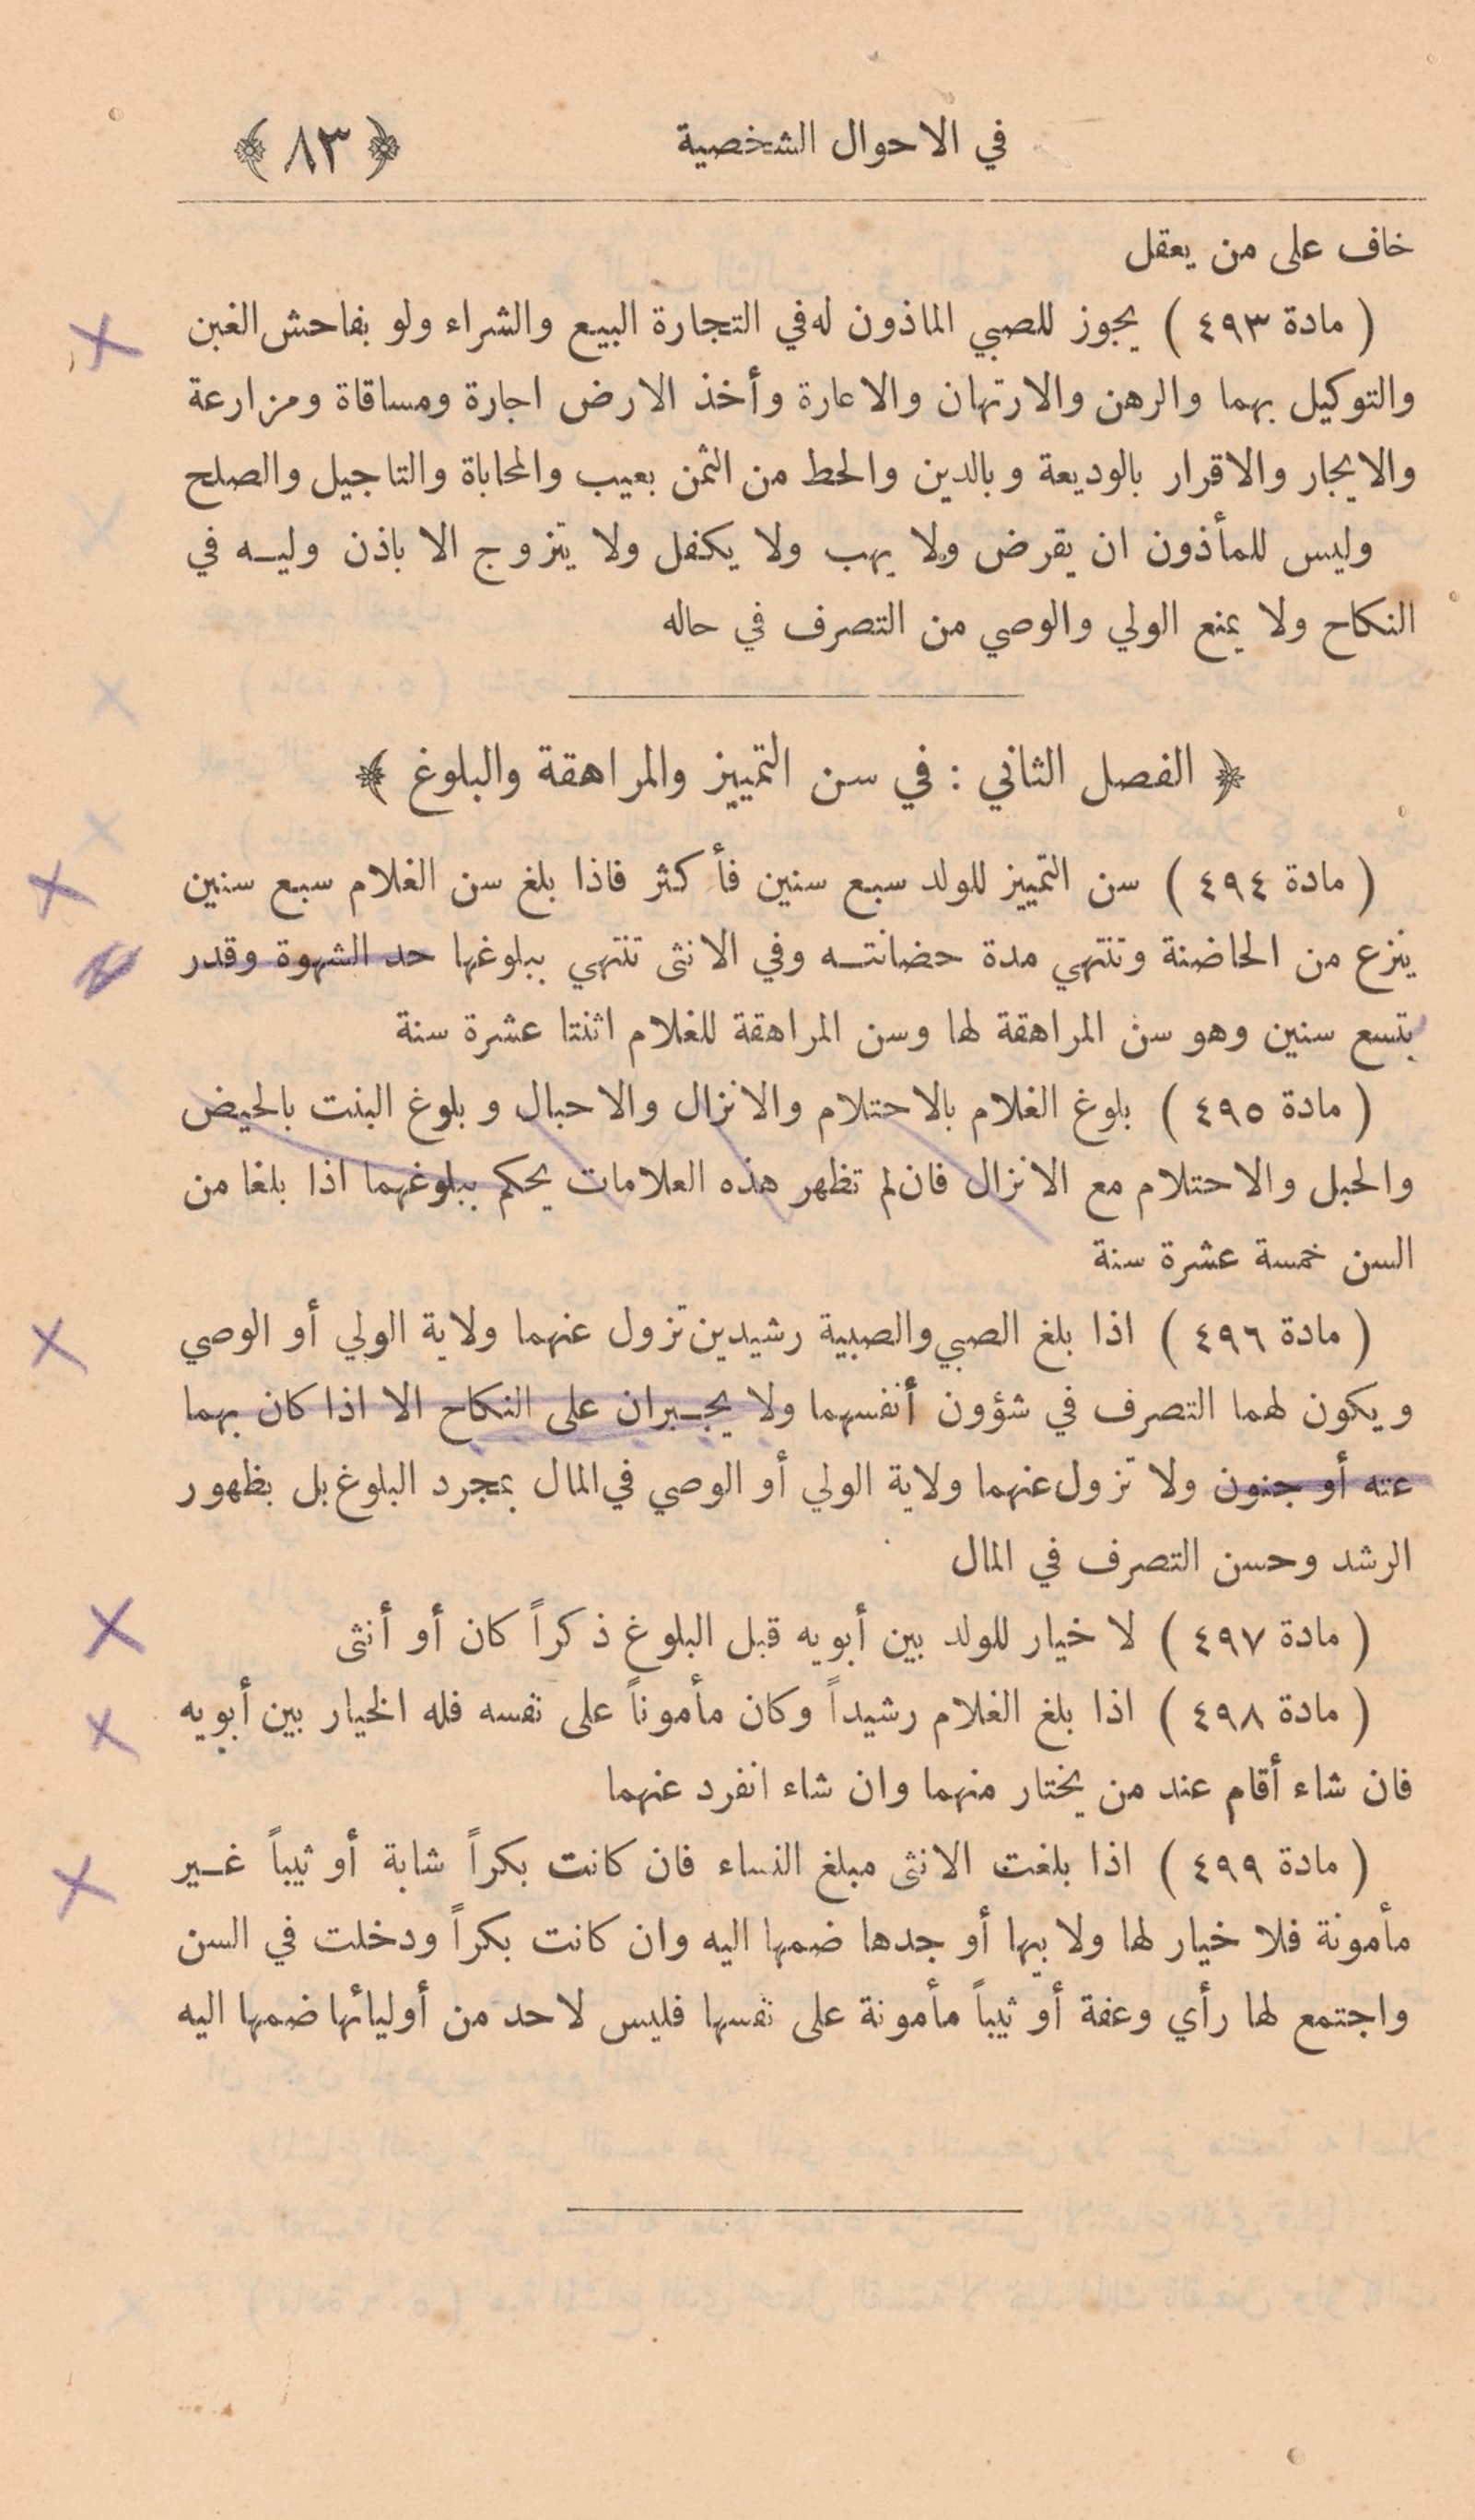 في الاحوال الشخصية ﴿ ٨٣ ﴾
خاف على من يعقل
( مادة ٤٩٣ ) يجوز للصبي الماذون له في التجارة البيع والشراء ولو بفاحش الغبن
والتوكيل بهما والرهن والارتهان والاعارة وأخذ الارض اجارة ومساقاة ومزارعة
والايجار والاقرار بالوديعة وبالدين والحط من الثمن بعيب والمحاباة والتاجيل والصلح
وليس للمأذون ان يقرض ولا يهب ولا يكفل ولا يتزوج الا باذن وليه في
النكاح ولا يمنع الولي والوصي من التصرف في حاله
﴿ الفصل الثاني : في سن التمييز والمراهقة والبلوغ ﴾
( مادة ٤٩٤ ) سن التمييز للولد سبع سنين فأكثر فاذا بلغ سن الغلام سبع سنين
ينزع من الحاضنة وتنتهي مدة حضانته وفي الانثى تنتهي ببلوغها حد الشهوة وقدر
بتسع سنين وهو سن المراهقة لها وسن المراهقة للغلام اثنتا عشرة سنة
( مادة ٤٩٥ ) بلوغ الغلام بالاحتلام والانزال والاحبال وبلوغ البنت بالحيض
والحبل والاحتلام مع الانزال فان لم تظهر هذه العلامات يحكم ببلوغهما اذا بلغا من
السن خمسة عشرة سنة
( مادة ٤٩٦ ) اذا بلغ الصبي والصبية رشيدين تزول عنهما ولاية الولي أو الوصي
ويكون لهما التصرف في شؤون أنفسهما ولا يجبران على النكاح الا اذا كان بهما
عته أو جنون ولا تزول عنهما ولاية الولي أو الوصي في المال بمجرد البلوغ بل بظهور
الرشد وحسن التصرف في المال
( مادة ٤٩٧ ) لا خيار للولد بين أبويه قبل البلوغ ذكراً كان أو أنثى
( مادة ٤٩٨ ) اذا بلغ الغلام رشيداً وكان مأموناً على نفسه فله الخيار بين أبويه
فان شاء أقام عند من يختار منهما وان شاء انفرد عنهما
( مادة ٤٩٩ ) اذا بلغت الانثى مبلغ النساء فان كانت بكراً شابة أو ثيباً غير
مأمونة فلا خيار لها ولابيها أو جدها ضمها اليه وان كانت بكراً ودخلت في السن
واجتمع لها رأي وعفة أو ثيباً مأمونة على نفسها فليس لاحد من أوليائها ضمها اليه